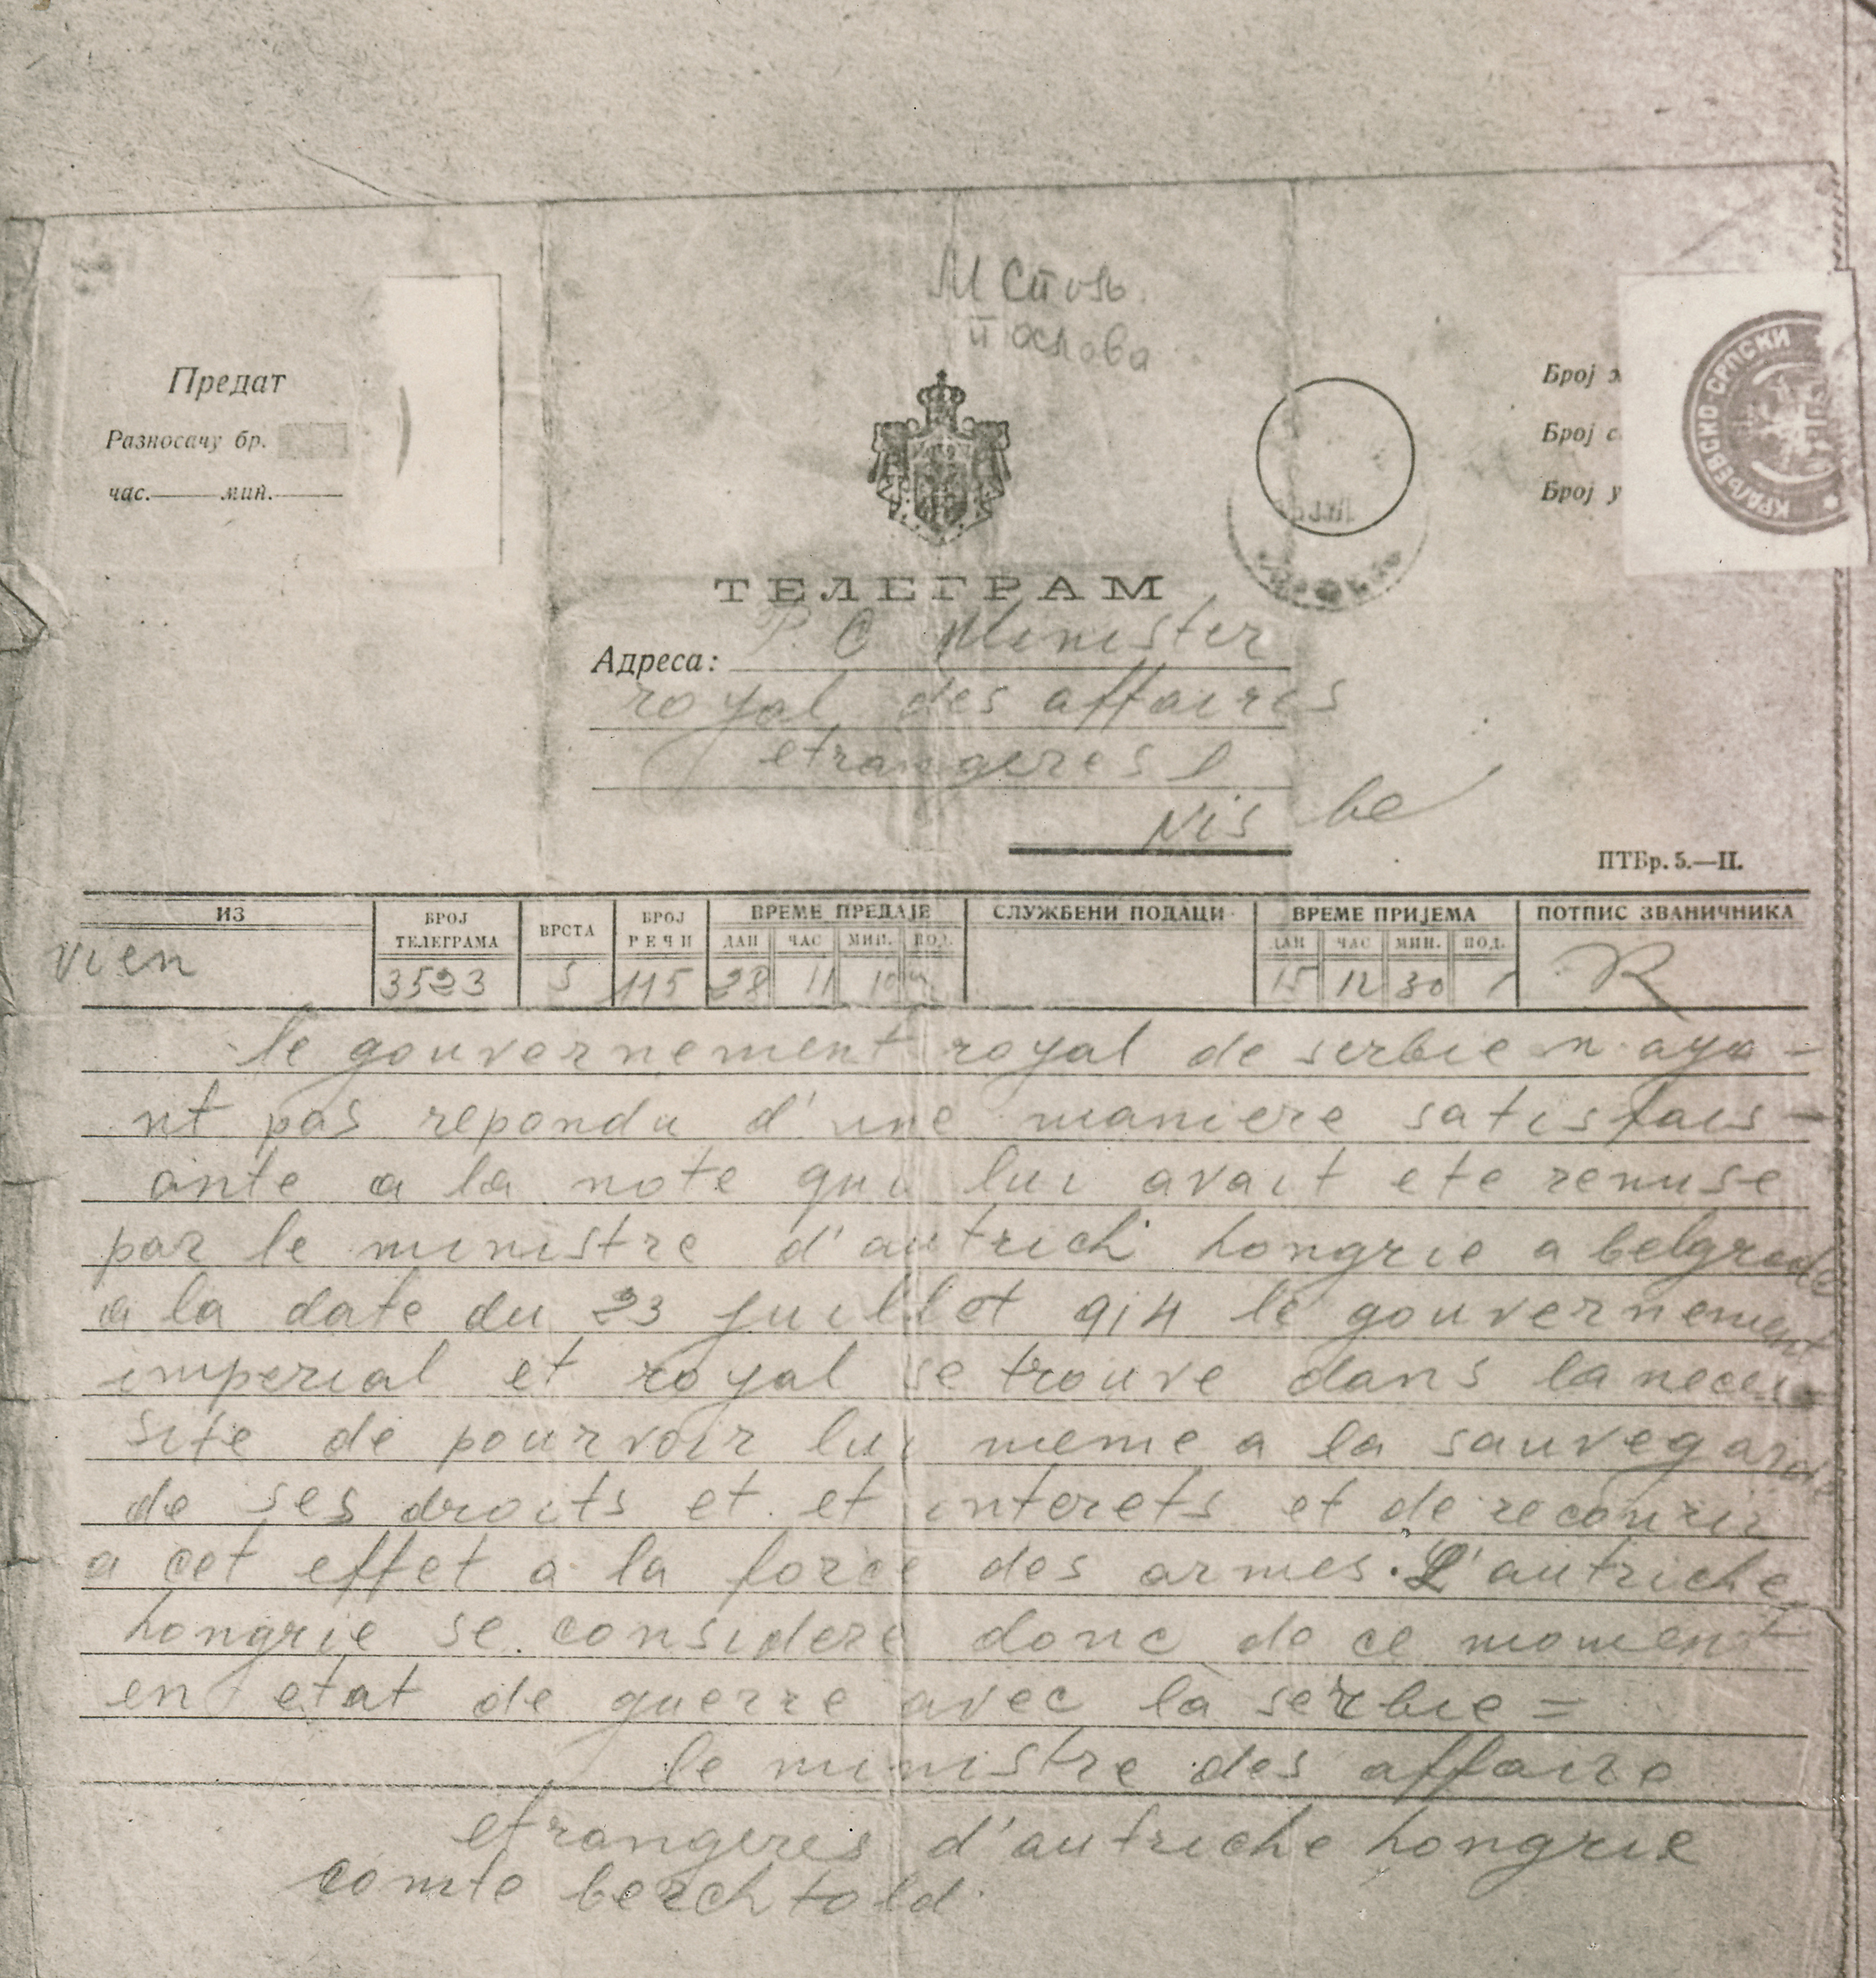 М Стпв
послова
Предат
Разносачу бр.
час. мин.
Број
Број с
Број у
КРАЉЕВСКО-СРПСКИ
ТЕЛЕГРАМ
Адреса: P. C Minister
royal des affaires
etrangeres
Nis be
ПТБр. 5.—II.
ИЗ БРОЈ ТЕЛЕГРАМА ВРСТА БРОЈ РЕЧИ ВРЕМЕ ПРЕДАЈЕ СЛУЖБЕНИ ПОДАЦИ ВРЕМЕ ПРИЈЕМА ПОТПИС ЗВАНИЧНИКА
ДАН ЧАС МИН. ПОД. ДАН ЧАС МИН. ПОД.
vien 3523 S 115 28 11 10 15 12 30 R
le gouvernement royal de serbie n aya-
nt pas repondu d'une maniere satisfais-
ante a la note qui lui avait ete remise
par le ministre d'autrich hongrie a belgrade
a la date du 23 juillet 914 le gouvernement
imperial et royal se trouve dans la neces-
site de pourvoir lui meme a la sauvegarde
de ses droits et et interets et de recourir
a cet effet a la force des armes. L'autriche
hongrie se considere donc de ce moment
en etat de guerre avec la serbie =
le ministre des affaire
etrangeres d'autriche hongrie
comte berchtold.